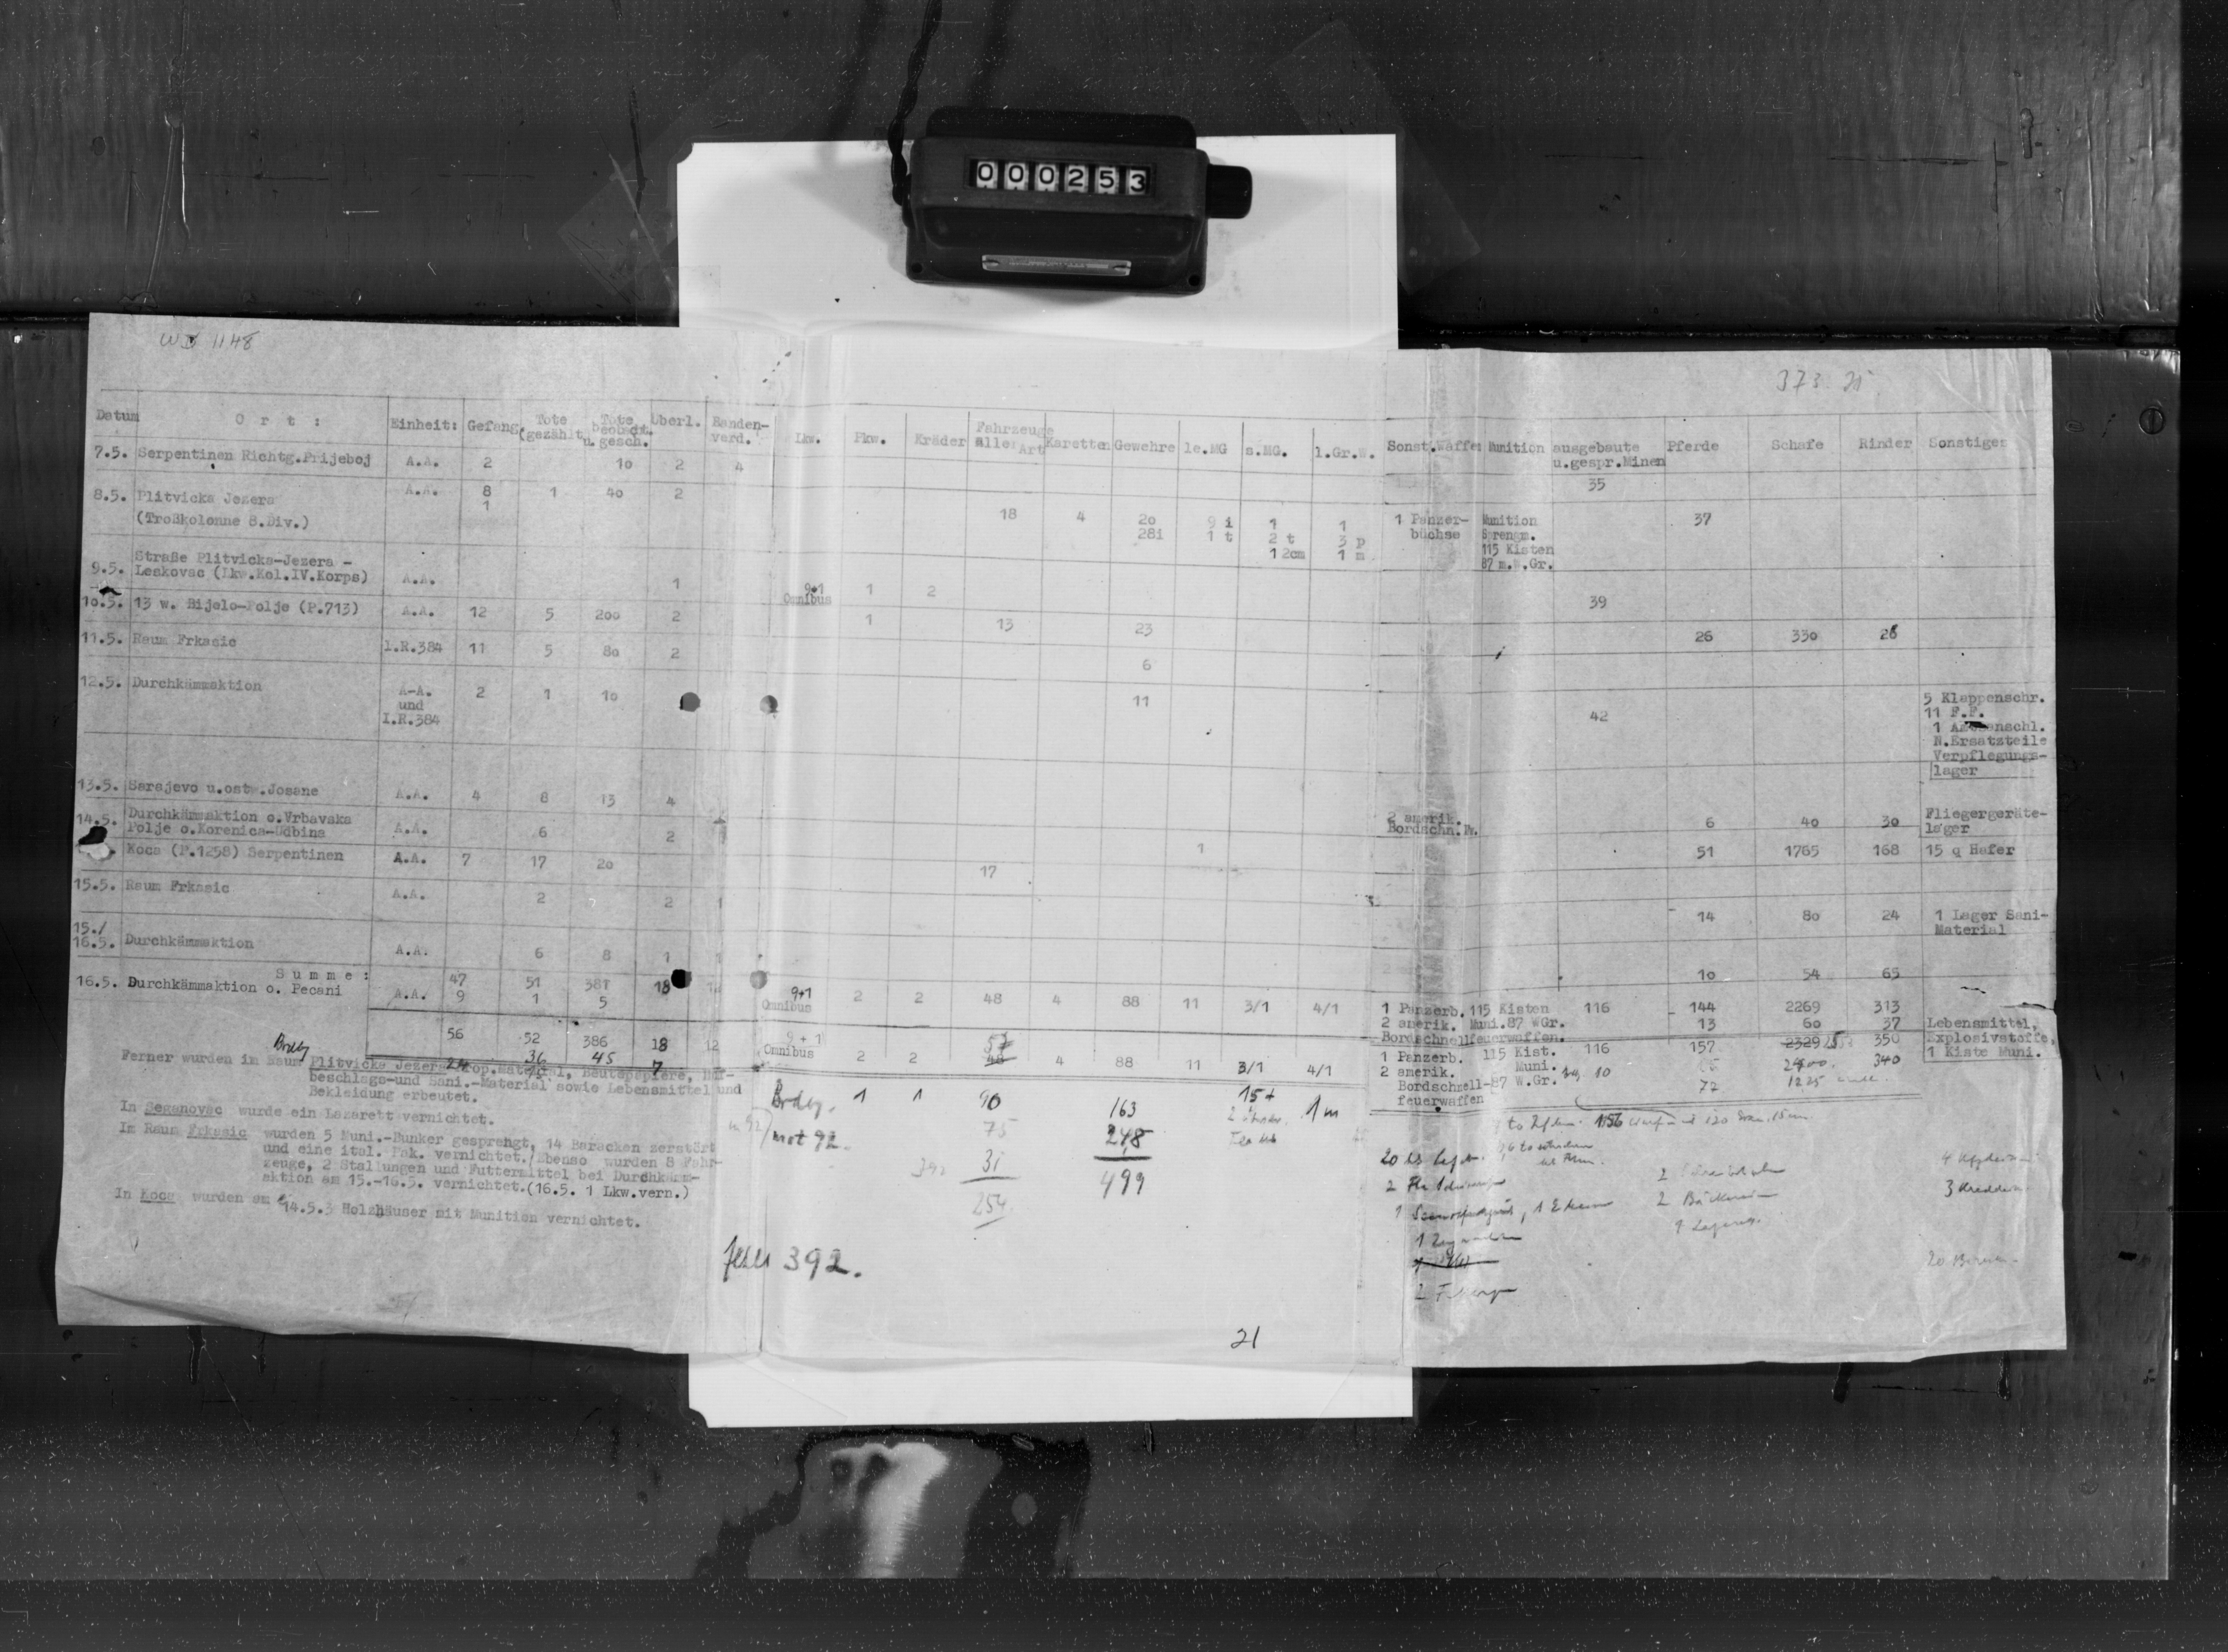 000253
WB 1148
373. 21.
Datum Ort: Einheit: Gefang. Tote (gezählt Tote beobacht. u. gesch. Überl. Banden-verd. Lkw. Pkw. Kräder Fahrzeuge aller Art Karetten Gewehre le.MG s.MG. l.Gr.W. Sonst.Waffen Munition ausgebaute u.gespr.Minen Pferde Schafe Rinder Sonstiges
7.5. Serpentinen Richtg.Prijeboj A.A. 2 10 2 4 35
8.5. Plitvicka Jezera A.A. 8 1 40 2
1
(Troßkolonne 8.Div.) 18 4 20 9 i 1 1 1 Panzer- Munition 37
28i 1 t 2 t 3 p büchse Sprengm.
1 2cm 1 m 115 Kisten
87 m.W.Gr.
Straße Plitvicka-Jezera -
9.5. Leskovac (Lkw.Kol.IV.Korps) A.A. 1 9+1 1 2 39
Omnibus
10.5. 13 w. Bijelo-Polje (P.713) A.A. 12 5 200 2 1 13 23 26 330 28
11.5. Raum Frkasic I.R.384 11 5 80 2 6
12.5. Durchkämmaktion A-A. 2 1 10 11 42 5 Klappenschr.
und 11 F.F.
I.R.384 1 enschl.
N.Ersatzteile
Verpflegungs-
lager
13.5. Sarajevo u.ostw.Josane A.A. 4 8 13 4 2 amerik. 6 40 30 Fliegergeräte-
Bordschn. lager
14.5. Durchkämmaktion o.Vrbavaka
Polje o.Korenica-Udbina A.A. 6 2 1 51 1765 168 15 q Hafer
Koca (P.1258) Serpentinen A.A. 7 17 20 17
15.5. Raum Frkasic A.A. 2 2 1 14 80 24 1 Lager Sani-
Material
15./
16.5. Durchkämmaktion A.A. 6 8 1 1 10 54 65
Summe: 47 51 381 18 9+1 2 2 48 4 88 11 3/1 4/1 1 Panzerb. 115 Kisten 116 144 2269 313
Omnibus
16.5. Durchkämmaktion o. Pecani A.A. 9 1 5 2 amerik. Muni.87 WGr. 13 60 37 Lebensmittel,
Bordschnellfeuerwaffen. Explosivstoffe,
1 Kiste Muni.
56 52 386 18 12 9+1 2 2 57 48 4 88 11 3/1 4/1 1 Panzerb. 115 Kist. 116 157 2329 350
Omnibus
24 36 45 7 2 amerik. Muni. 10 2400. 340
Bordschnell-87 W.Gr. 72 1225
feuerwaffen
Ferner wurden im Raum Plitvicka Jezera Trop.Material, Beutepapiere, Huf-
beschlags-und Sani.-Material sowie Lebensmittel und
Bekleidung erbeutet.
In Seganovac wurde ein Lazarett vernichtet.
Im Raum Frkasic wurden 5 Muni.-Bunker gesprengt, 14 Baracken zerstört
und eine ital. Pak. vernichtet. Ebenso wurden 8 Fahr-
zeuge, 2 Stallungen und Futtermittel bei Durchkämm-
aktion am 15.-16.5. vernichtet.(16.5. 1 Lkw.vern.)
In Koca wurden am 14.5.3 Holzhäuser mit Munition vernichtet.
Brdbg. 1 1 90 163 15+ 1 m
mot 92. 75 248
392 31 499
254
392.
2 Bäckerei
21